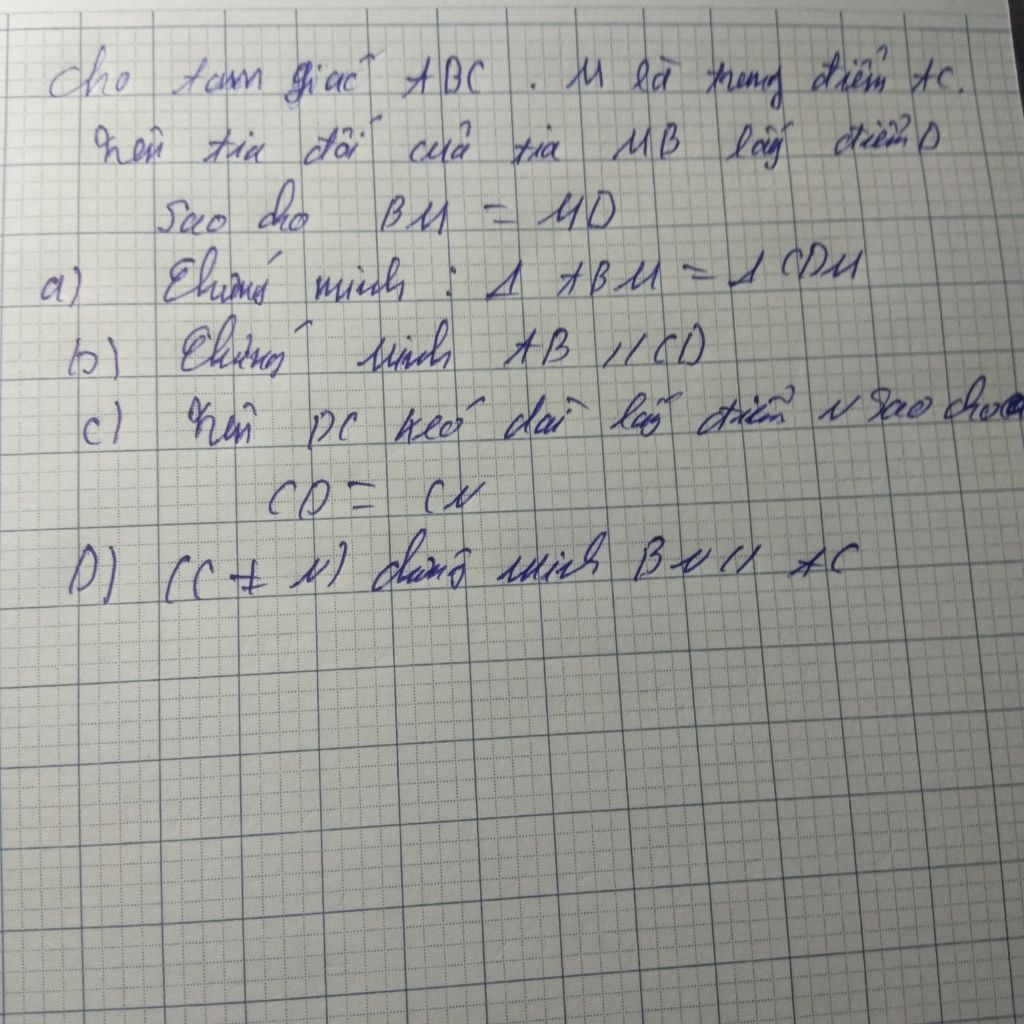 Cho tam giác ABC . M là trung điểm AC.
Trên tia đối của tia MB lấy điểm D
Sao cho BM = MD
a) Chứng minh : Δ ABM = Δ CDM
b) Chứng minh AB // CD
c) Trên DC kéo dài lấy điểm N sao cho
CD = CN
D) (C ≠ N) chứng minh BN // AC